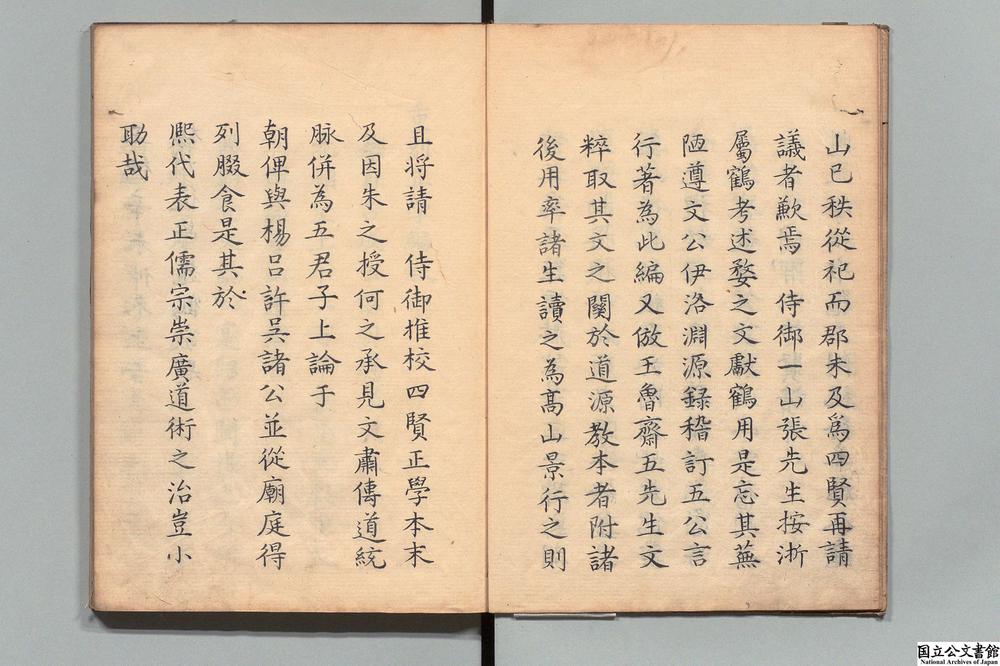 山已秩從祀而郡朱及爲四賢再請
議者歉焉　侍御一山張先生按浙
屬鶴考述婺之文獻鶴用是忘其蕪
陋遵文公伊洛淵源録稽訂五公言
行著為此編又倣王魯齋五先生文
粹取其文之関於道源教本者附諸
後用率諸生讀之為髙山景行之則
且将請　侍御推校四賢正學本末
及因朱之授何之承見文肅傳道統
脉併為五君子上論于
朝俾與楊呂許吳諸公並從廟庭得
列腏食是其於
熈代表正儒宗崇廣道術之治豈小
助哉
国立公文書館
National Archives of Japan